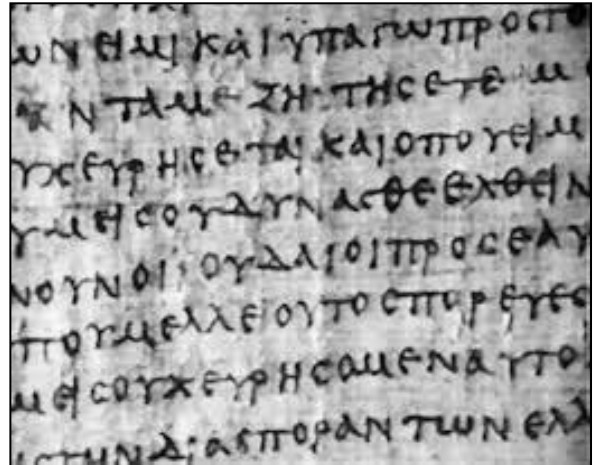 ωΝ ΕΙΜΙ ΚΑΙ ΥΠΑΓω ΠΡΟϹ ΤΟ
ΝΤΑ ΜΕ ΖΗΤΗϹΕΤΕ Μ
ΥΧ ΕΥΡΗϹΕΤΑΙ ΚΑΙ ΟΠΟΥ ΕΙΜ
ΥΜΕΙϹ ΟΥ ΔΥΝΑϹΘΕ ΕΛΘΕΙΝ
ΝΟΥΝ ΟΙ ΙΟΥΔΑΙΟΙ ΠΡΟϹ ΕΑΥ
ΠΟΥ ΜΕΛΛΕΙ ΟΥΤΟϹ ΠΟΡΕΥΕϹ
ΜΕΙϹ ΟΥΧ ΕΥΡΗϹΟΜΕΝ ΑΥΤΟ
ΙϹ ΤΗΝ ΔΙΑϹΠΟΡΑΝ ΤωΝ ΕΛΛ